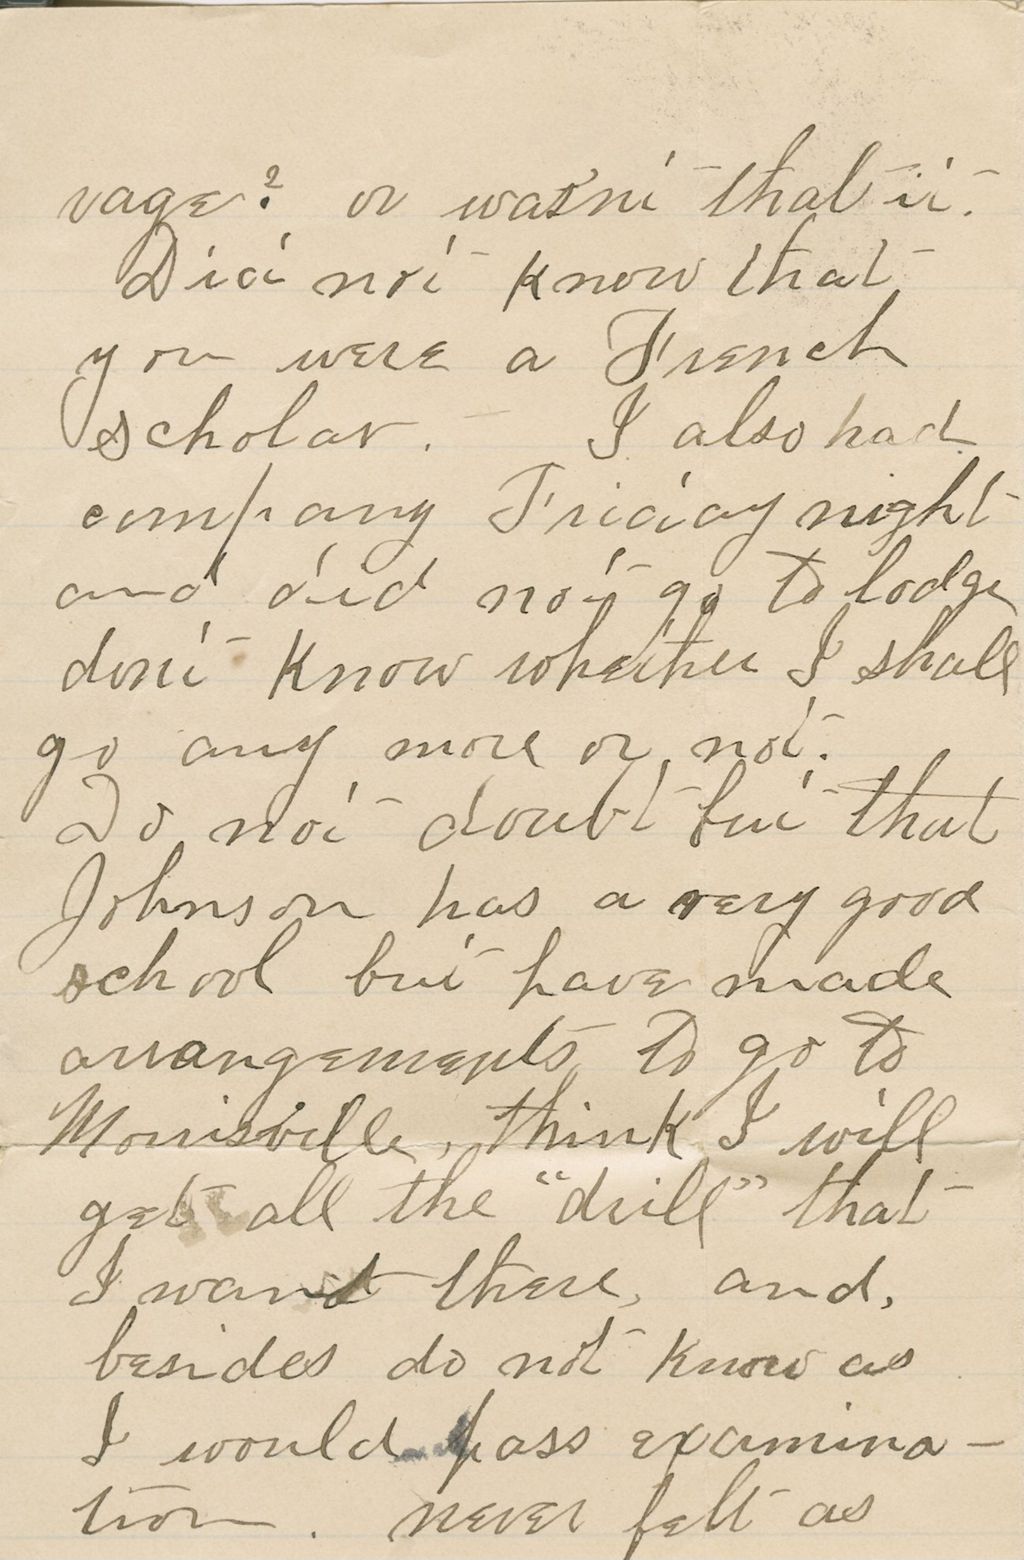 vage? or wasn't that it.
Did not know that
you were a French
scholar. – I also had
company Friday night
and did not go to lodge
don't know whether I shall
go any more or not.
Do not doubt but that
Johnson has a very good
school but have made
arrangements to go to
Morrisville, think I will
get all the "drill" that
I want there, and,
besides do not know as
I would pass examina-
tion. never felt as